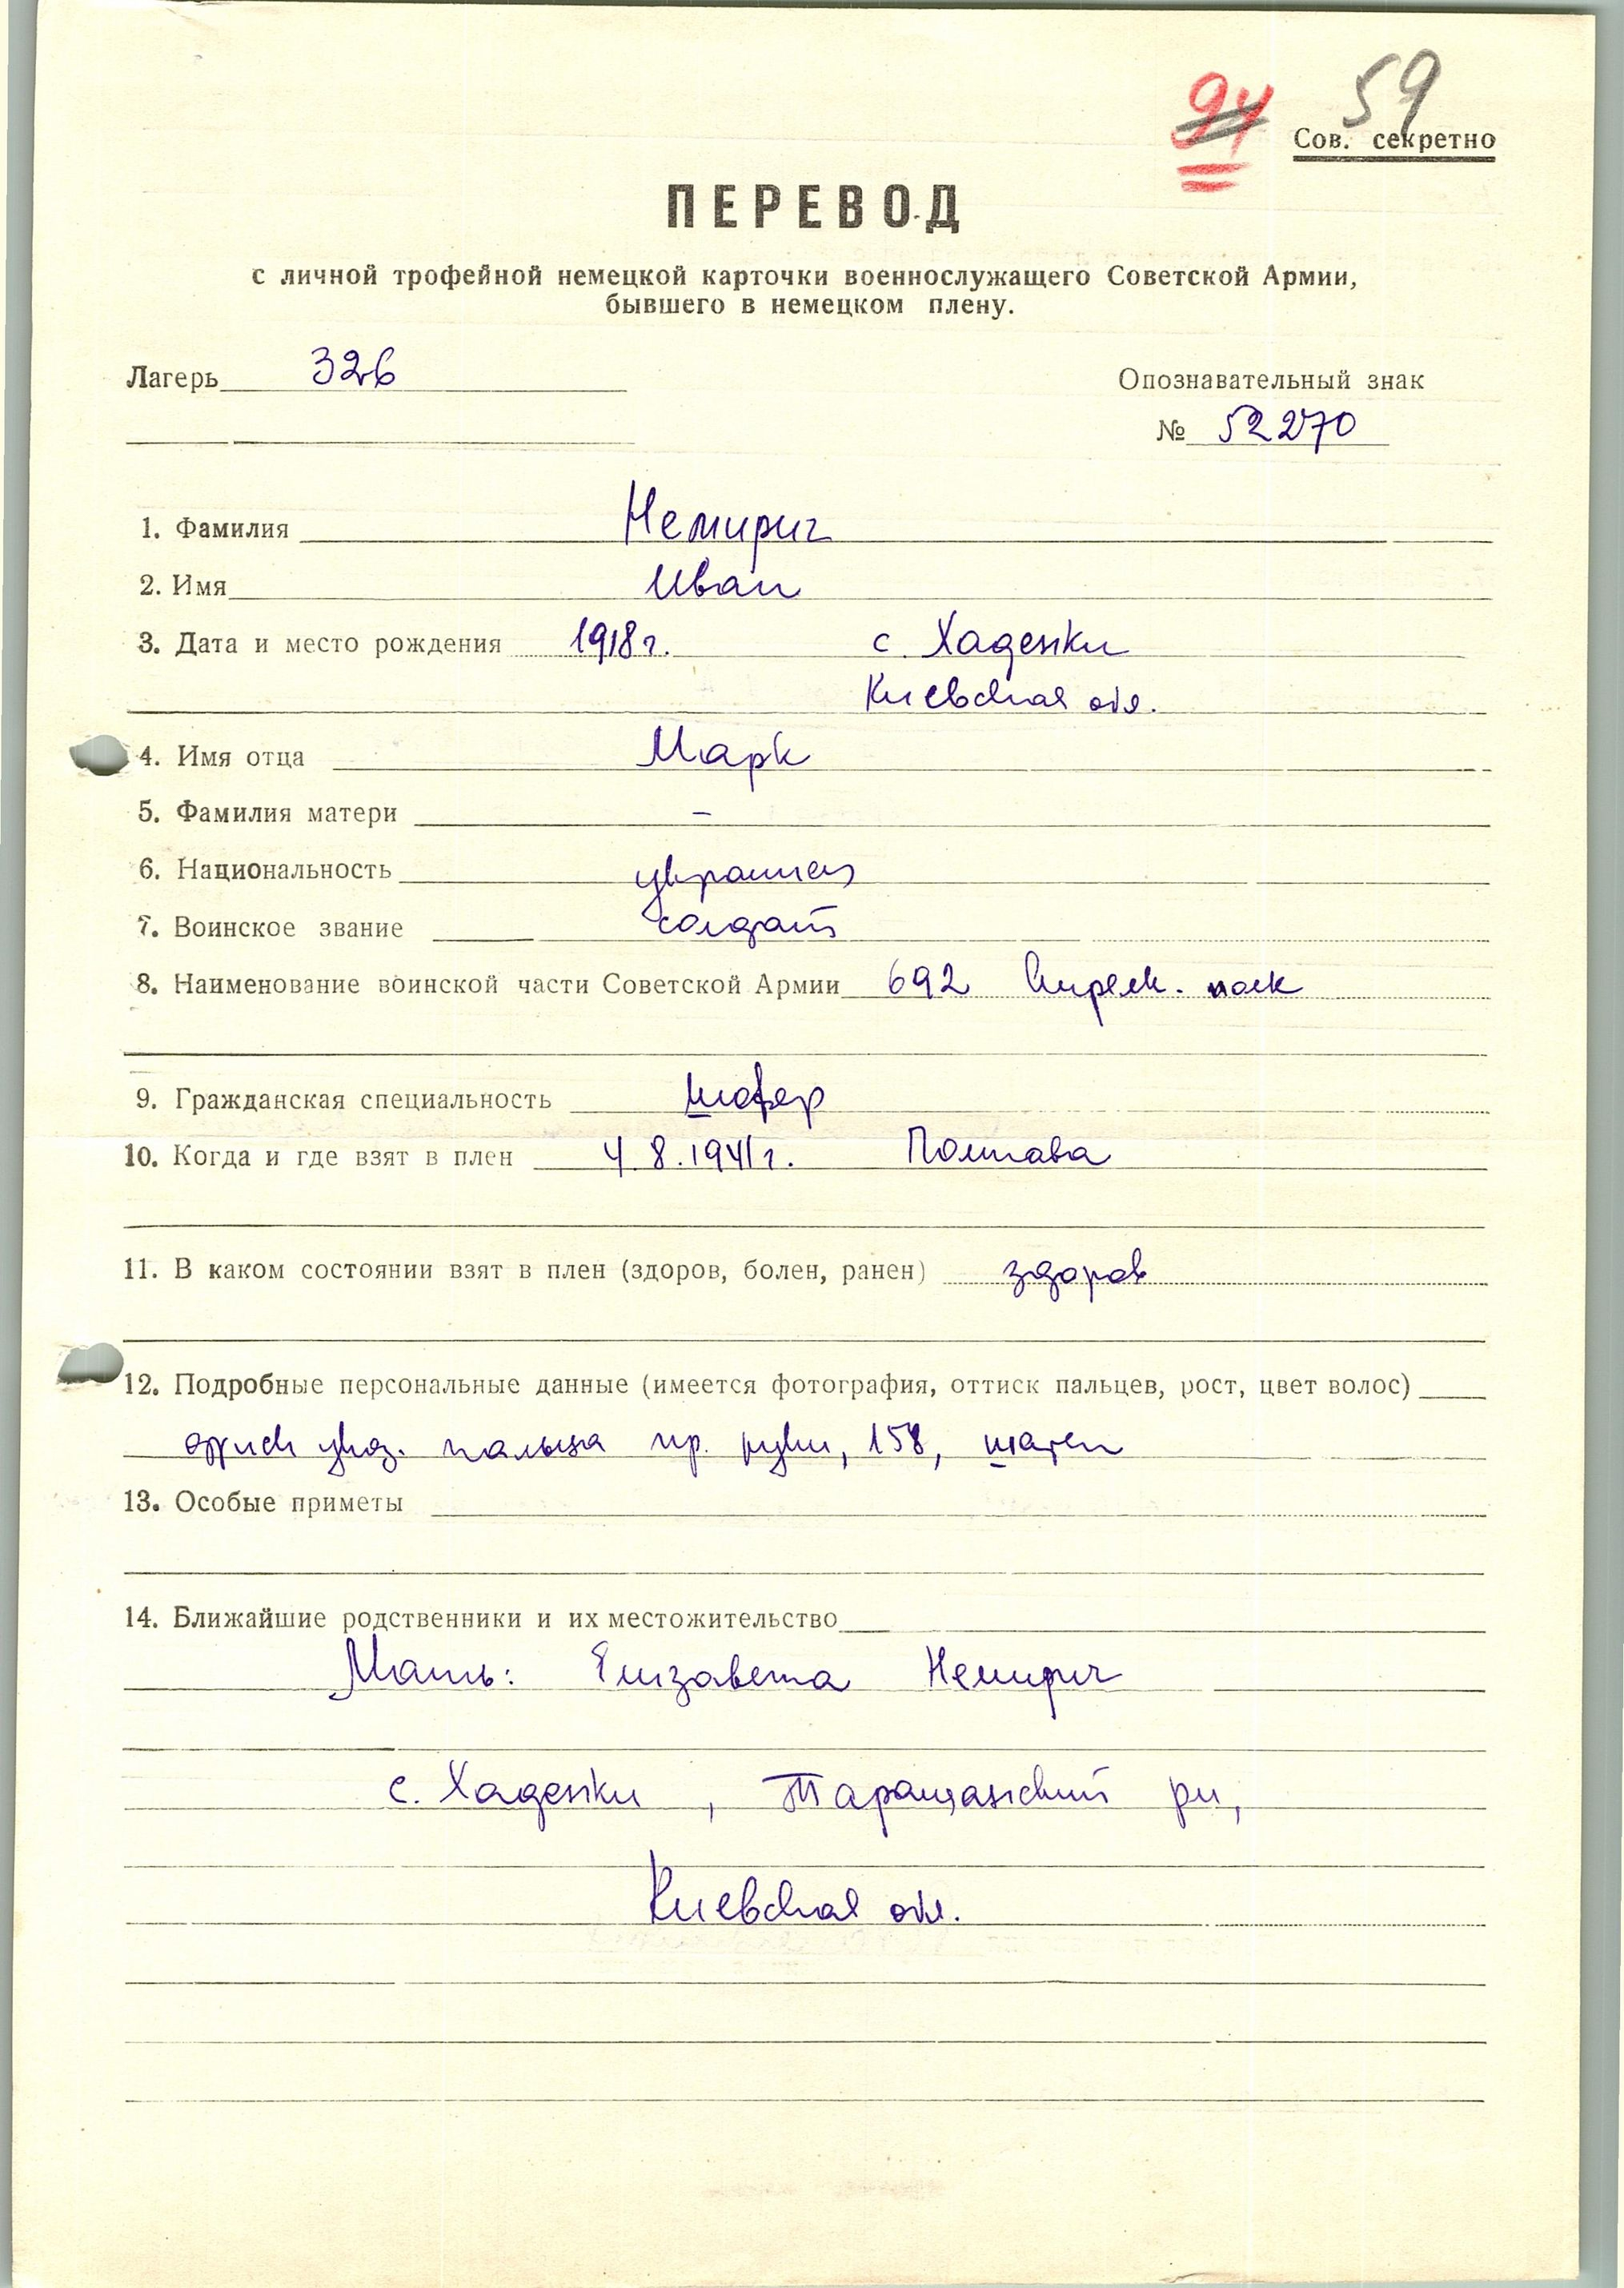 94 59
Сов. секретно
ПЕРЕВОД
с личной трофейной немецкой карточки военнослужащего Советской Армии,
бывшего в немецком плену.
Лагерь 326 Опознавательный знак
№ 52270
1. Фамилия Немирич
2. Имя Иван
3. Дата и место рождения 1918 г. с. Хаденки
Киевская обл.
4. Имя отца Марк
5. Фамилия матери –
6. Национальность украинец
7. Воинское звание солдат
8. Наименование воинской части Советской Армии 692 стрелк. полк
9. Гражданская специальность шофер
10. Когда и где взят в плен 4.8.1941 г. Полтава
11. В каком состоянии взят в плен (здоров, болен, ранен) здоров
12. Подробные персональные данные (имеется фотография, оттиск пальцев, рост, цвет волос)
оттиск указ. пальца пр. руки, 158, шатен
13. Особые приметы
14. Ближайшие родственники и их местожительство
Мать: Елизавета Немирич
с. Хаденки, Таращанский рн,
Киевская обл.